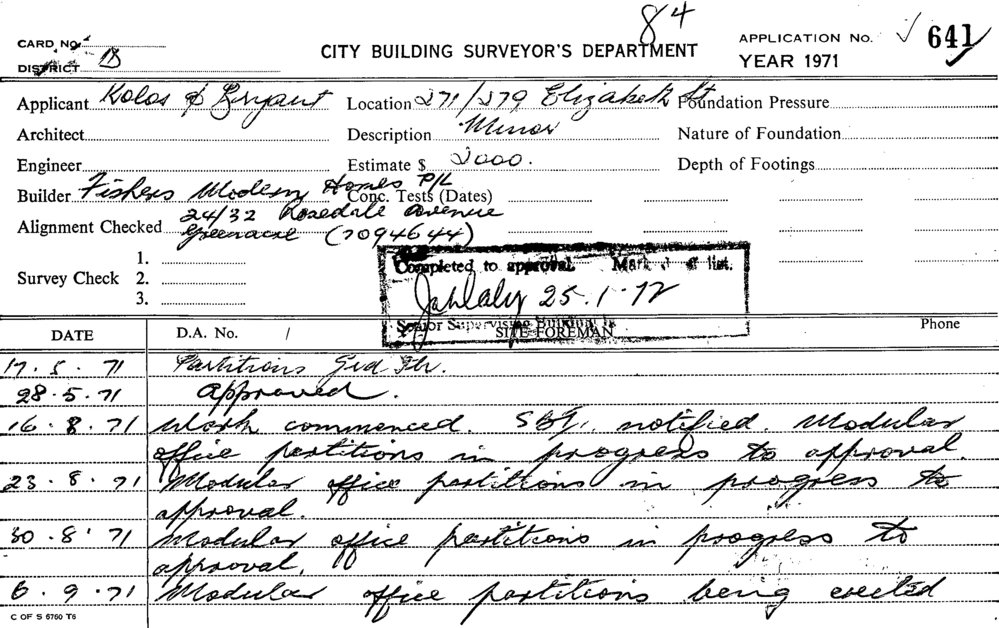 84
CARD No.
CITY BUILDING SURVEYOR'S DEPARTMENT
APPLICATION No. 641
DISTRICT B
YEAR 1971
Applicant Kolos & Bryant Location 271/279 Elizabeth St Foundation Pressure
Architect Description Minor Nature of Foundation
Engineer Estimate $ 2000. Depth of Footings
Builder Fishers Modern Homes P/L Conc. Tests (Dates)
24/32 Rosedale Avenue
Alignment Checked Greenacre (7094644)
1.
Completed to approval. Mark off list.
Survey Check 2.
25.1.72
3.
Senior Supervising Building
SITE FOREMAN
DATE D.A. No. / Phone
17.5.71 Partitions Grd Flr.
28.5.71 Approved.
16.8.71 Work commenced. notified. Modular
office partitions in progress to approval.
23.8.71 Modular office partitions in progress to
approval.
30.8.71 Modular office partitions in progress to
approval.
6.9.71 Modular office partitions being erected
C OF S 6760 T6